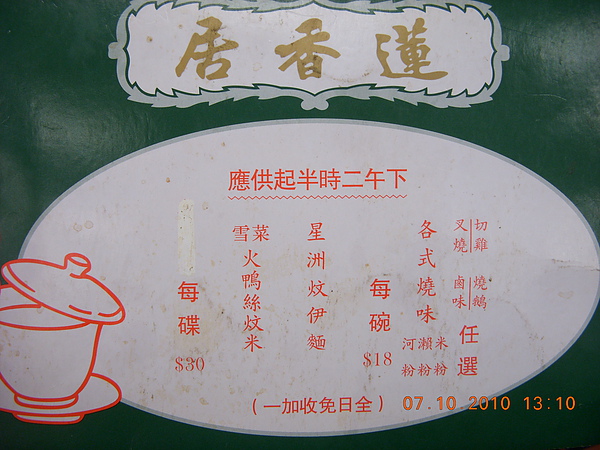 蓮香居
下午二時半起供應
切雞
叉燒
燒鵝
鹵味
任選
各式燒味
米粉
瀨粉
河粉
每碗
$18
星洲炆伊麵
雪菜火鴨絲炆米
每碟
$30
(全日免收加一)
07.10.2010 13:10